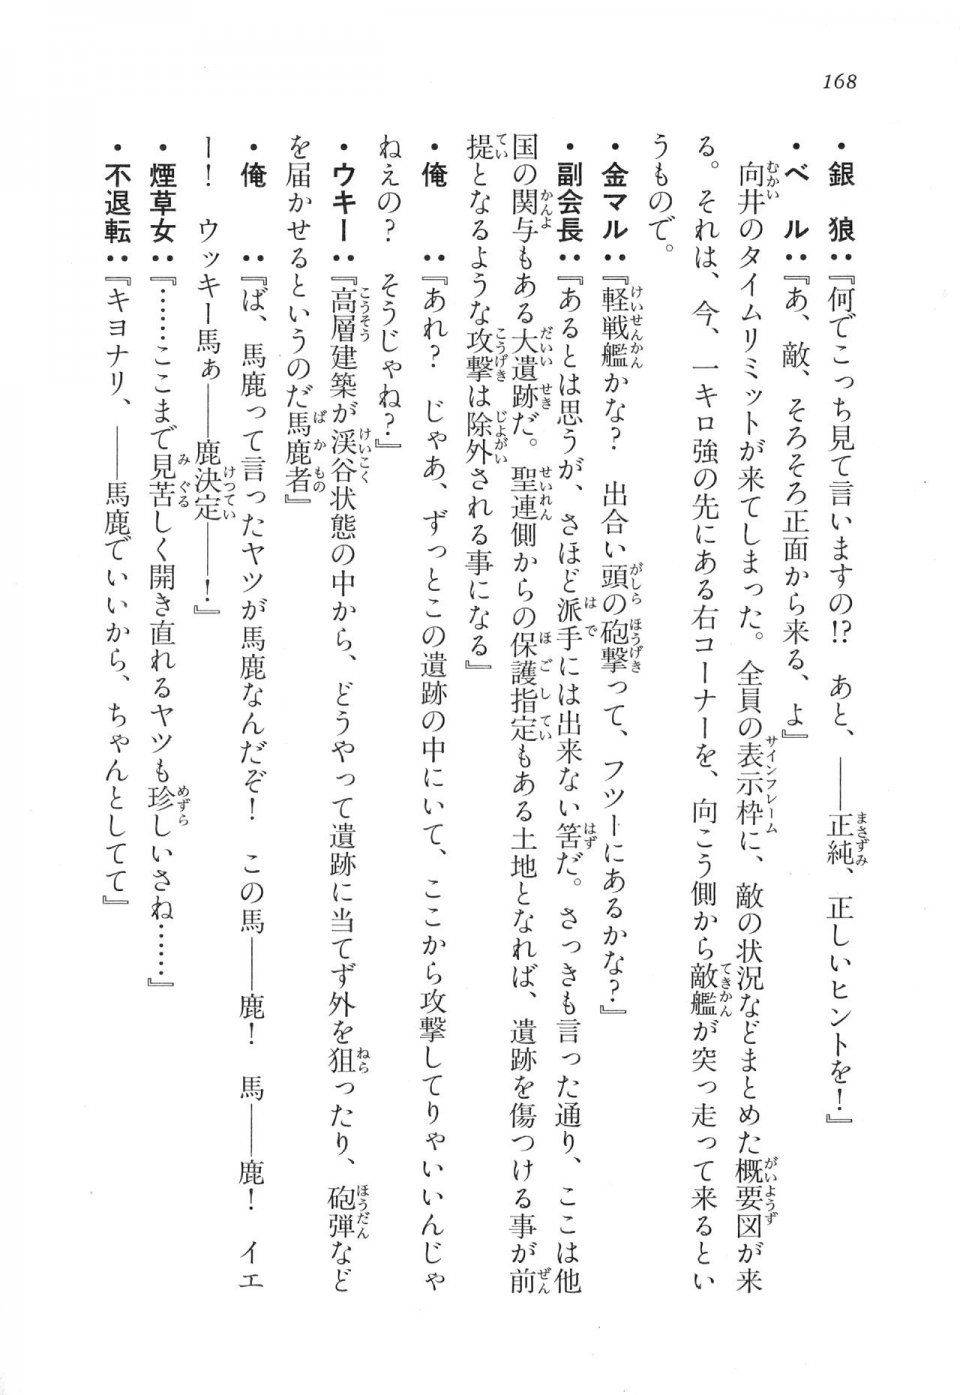 168
・銀　狼：『何でこっち見て言いますの!?　あと、――正純、正しいヒントを！』
・ベ　ル：『あ、敵、そろそろ正面から来る、よ』
　向井のタイムリミットが来てしまった。全員の表示枠に、敵の状況などまとめた概要図が来
る。それは、今、一キロ強の先にある右コーナーを、向こう側から敵艦が突っ走って来るとい
うもので。
・金マル：『軽戦艦かな？　出合い頭の砲撃って、フツーにあるかな？』
・副会長：『あるとは思うが、さほど派手には出来ない筈だ。さっきも言った通り、ここは他
国の関与もある大遺跡だ。聖連側からの保護指定もある土地となれば、遺跡を傷つける事が前
提となるような攻撃は除外される事になる』
・俺　　：『あれ？　じゃあ、ずっとこの遺跡の中にいて、ここから攻撃してりゃいいんじゃ
ねえの？　そうじゃね？』
・ウキー：『高層建築が渓谷状態の中から、どうやって遺跡に当てず外を狙ったり、砲弾など
を届かせるというのだ馬鹿者』
・俺　　：『ば、馬鹿って言ったヤツが馬鹿なんだぞ！　この馬――鹿！　馬――鹿！　イエ
ー！　ウッキー馬ぁ――鹿決定――！』
・煙草女：『……ここまで見苦しく開き直れるヤツも珍しいさね……』
・不退転：『キヨナリ、――馬鹿でいいから、ちゃんとしてて』